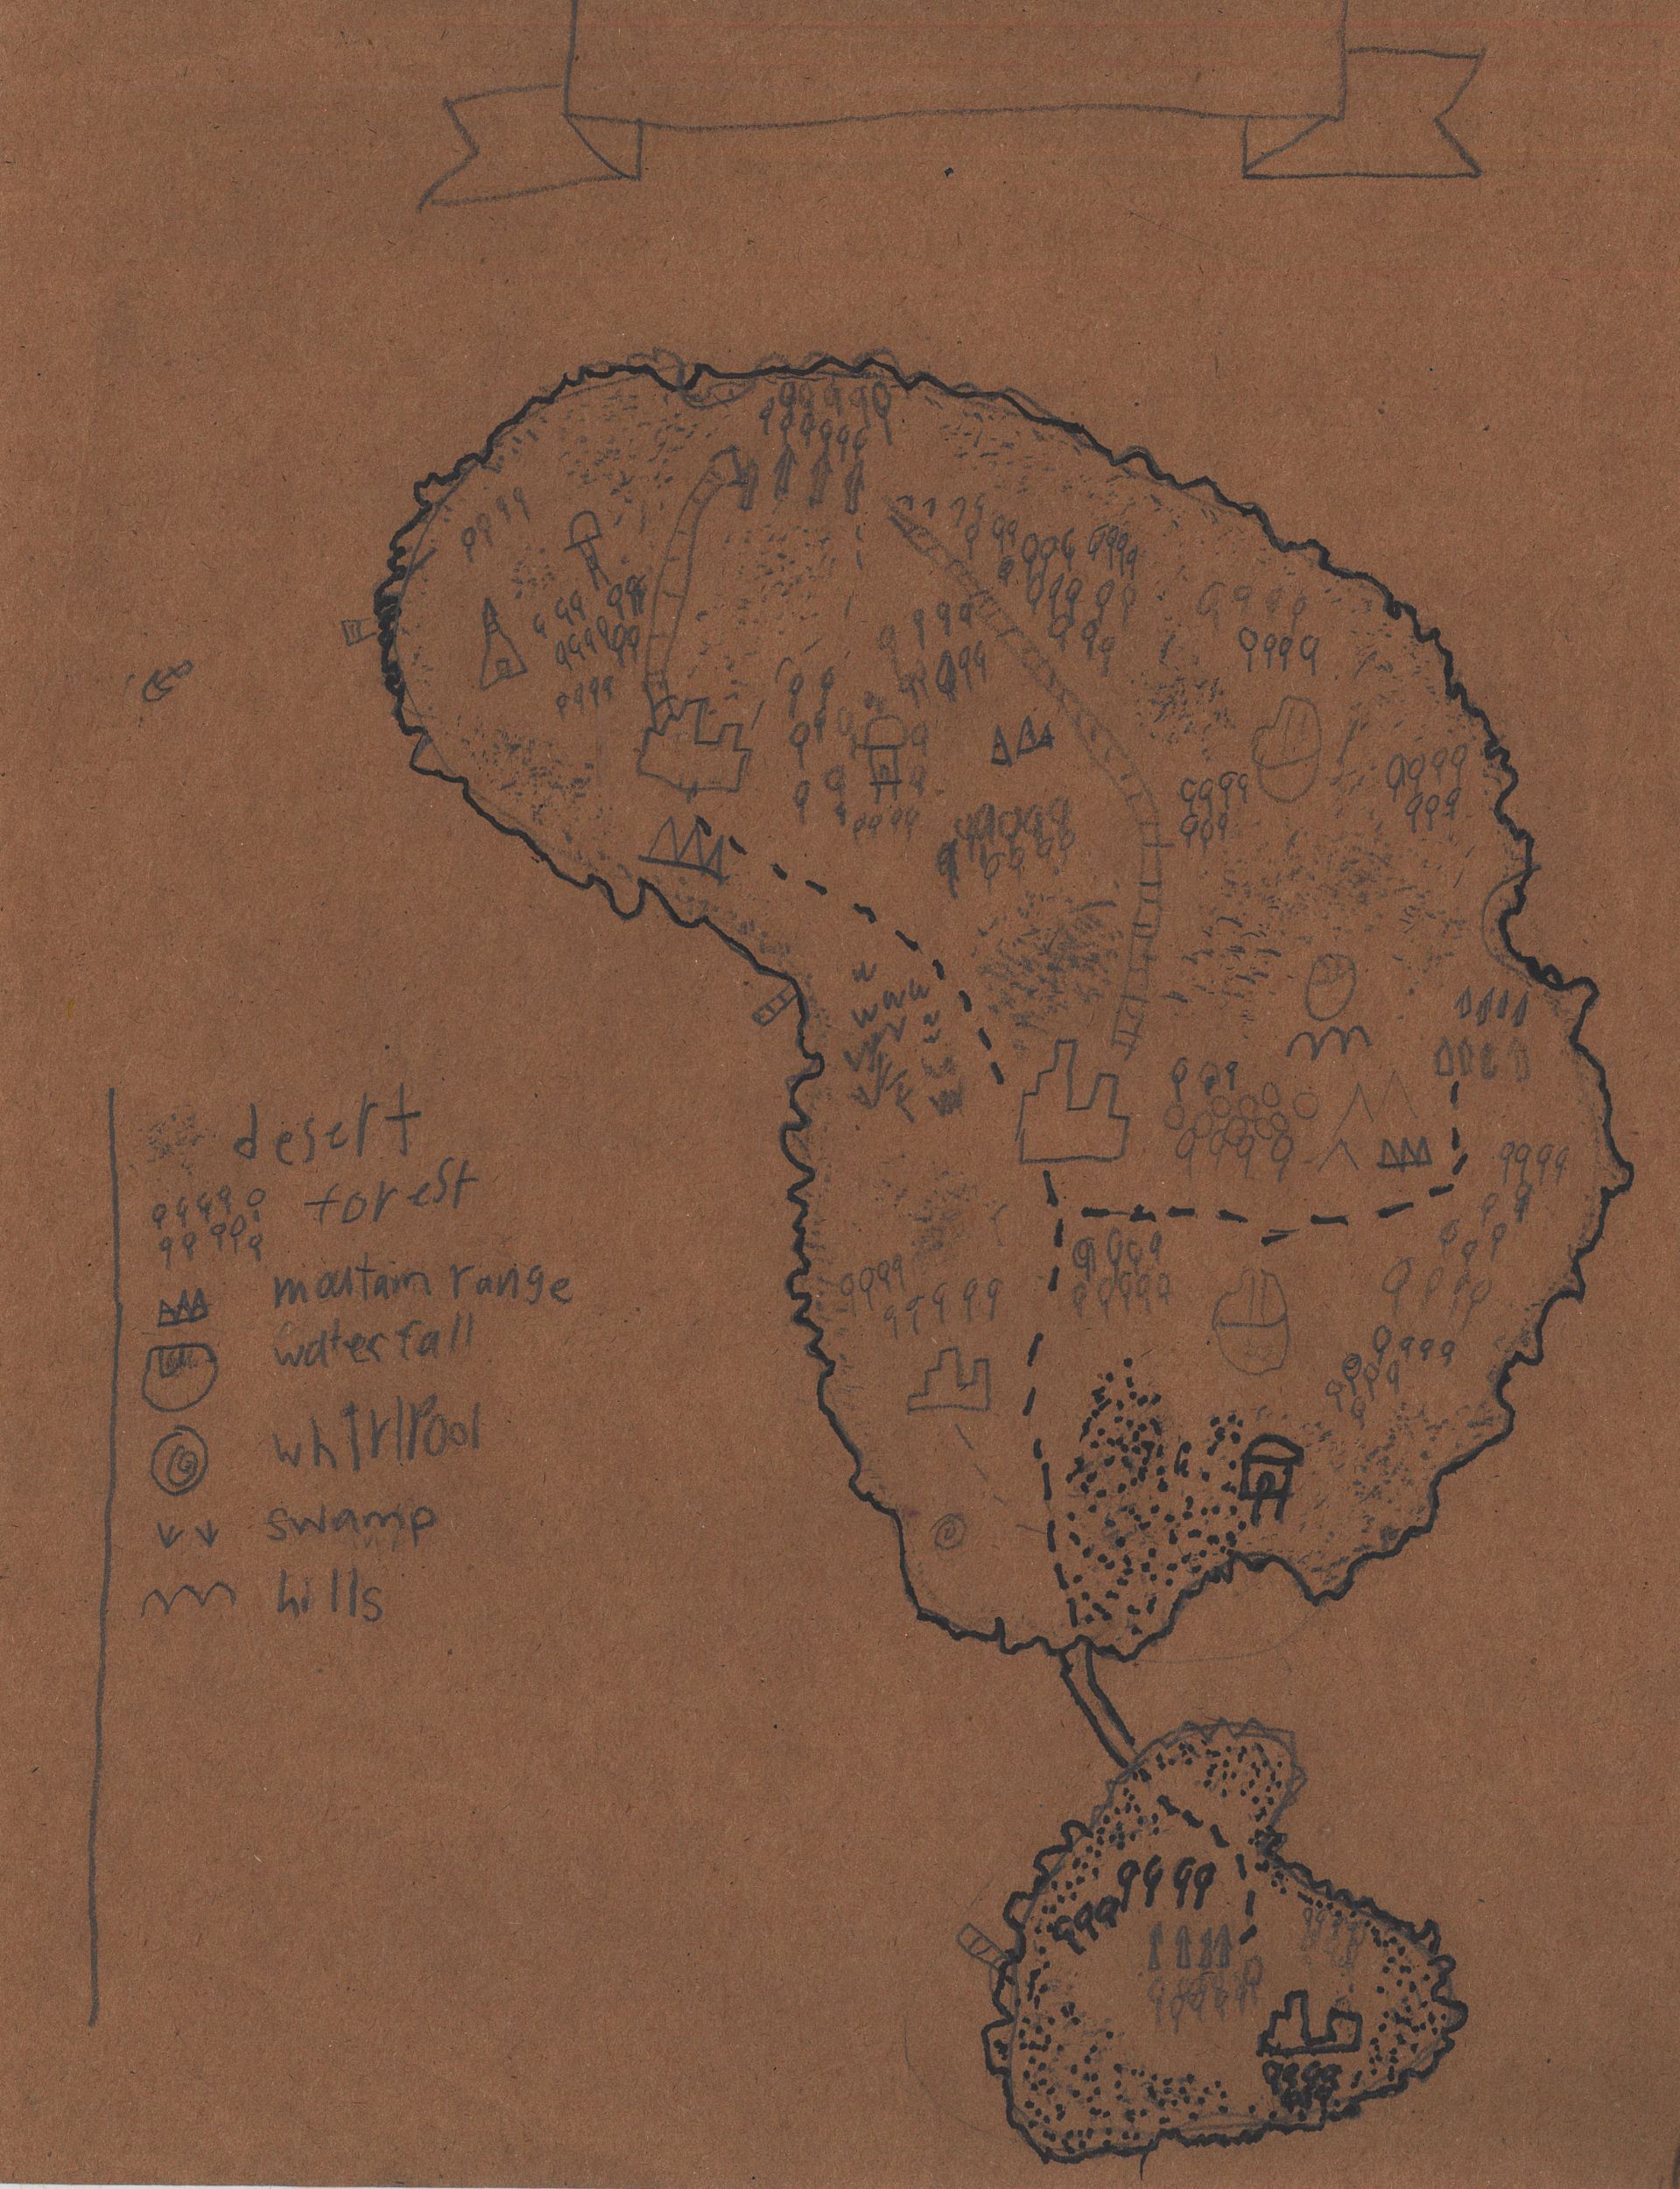 desert
forest
moutain range
waterfall
whirlpool
swamp
hills